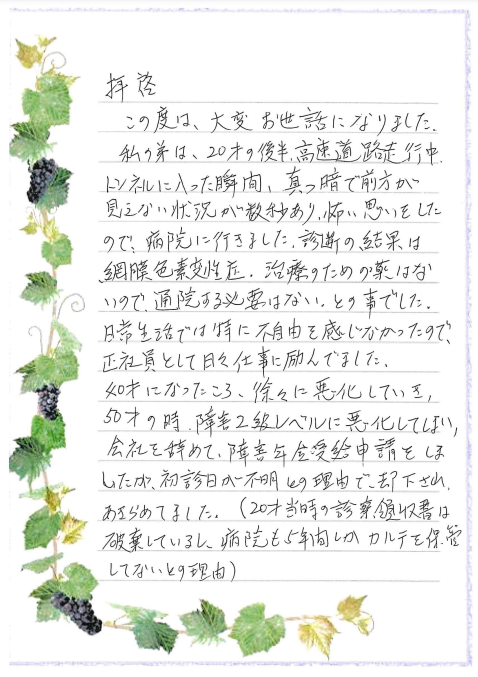 拝啓
この度は、大変お世話になりました。
私の弟は、20才の後半、高速道路走行中、
トンネルに入った瞬間、真っ暗で前方が
見えない状況が数秒あり、怖い思いをした
ので、病院に行きました。診断の結果は
網膜色素変性症。治療のための薬はな
いので、通院する必要はない。との事でした。
日常生活では特に不自由を感じなかったので、
正社員として日々仕事に励んでました。
40才になったころ、徐々に悪化していき、
50才の時、障害2級レベルに悪化してしまい、
会社を辞めて、障害年金受給申請をしま
したが、初診日が不明との理由で、却下され、
あきらめてました。(20才当時の診察領収書は
破棄しているし、病院も5年間しかカルテを保管
してないとの理由)